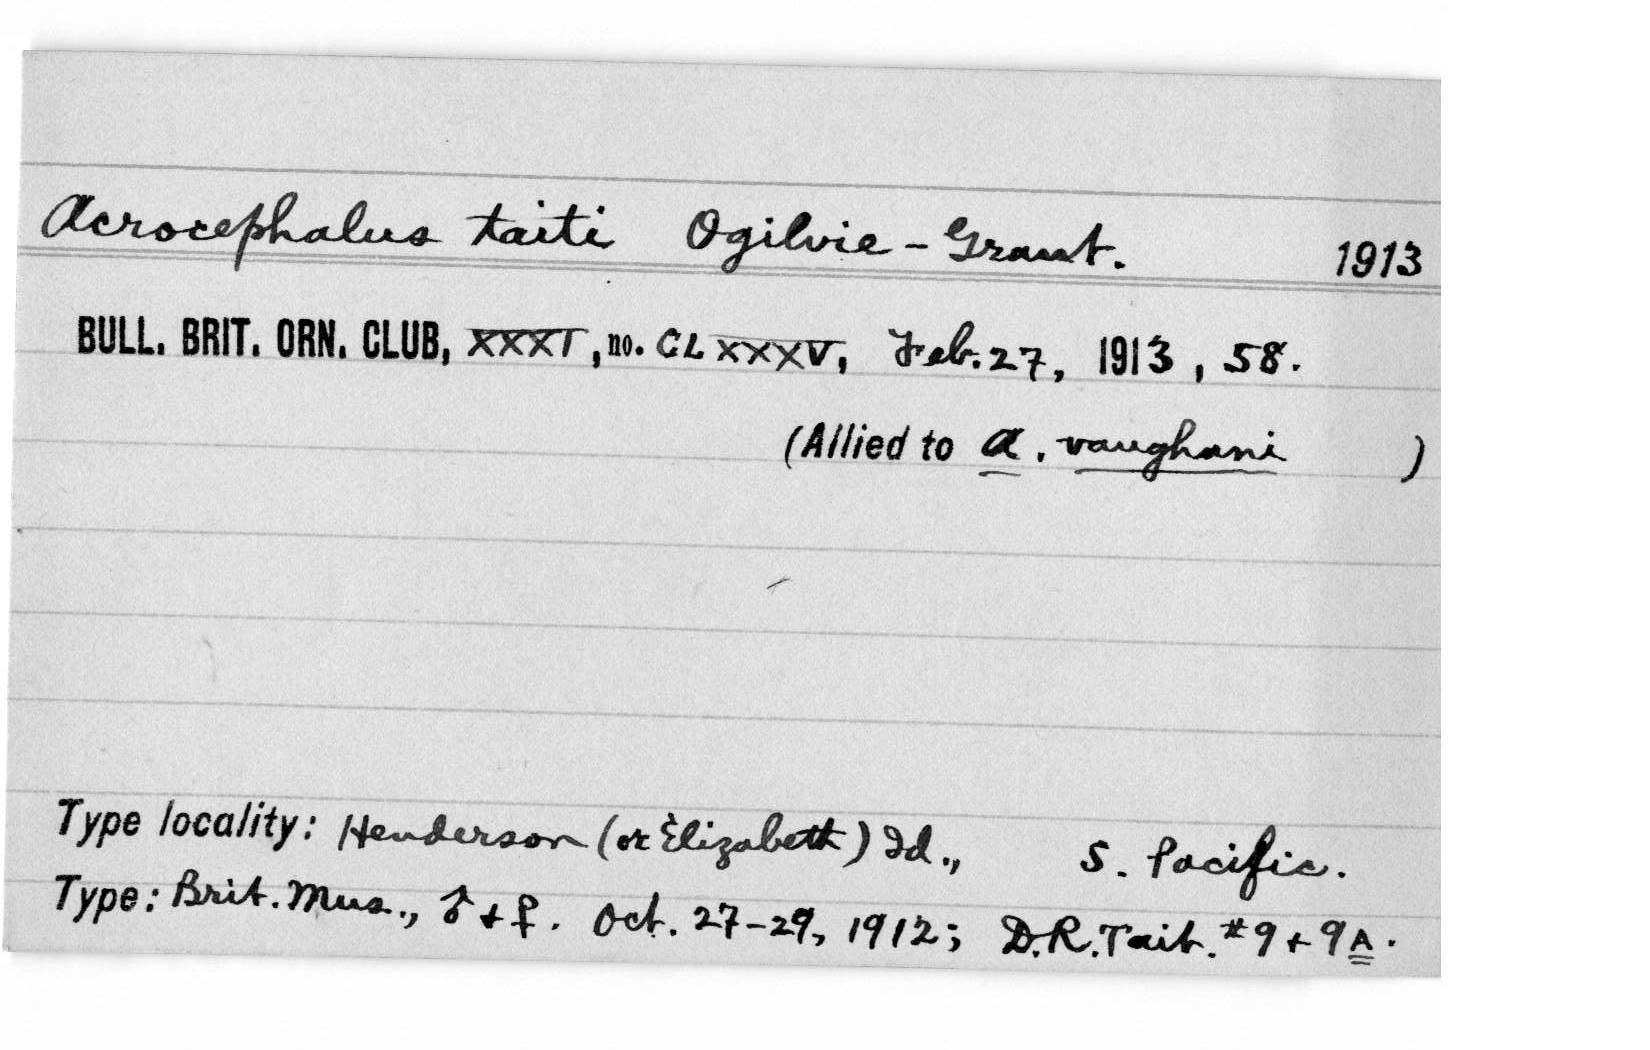 Acrocephalus taiti Ogilvie-Grant. 1913
BULL. BRIT. ORN. CLUB, XXXI, no. CLXXXV, Feb. 27, 1913, 58.
(Allied to A. vaughani )
Type locality: Henderson (or Elizabeth) Id., S. Pacific.
Type: Brit. Mus., ♂ + ♀. Oct. 27-29, 1912; D.R. Tait. #9 + 9A.